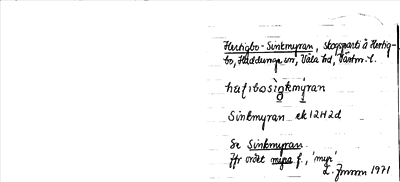 Hertigbo-Sinkmyran, skogsparti å Hertig-
bo, Huddunge sn, Våla hd, Västm. l.
Sinkmyran ek 12H2d
Se Sinkmyran
Jfr ordet myra f., 'myr'
L. Jonson 1971